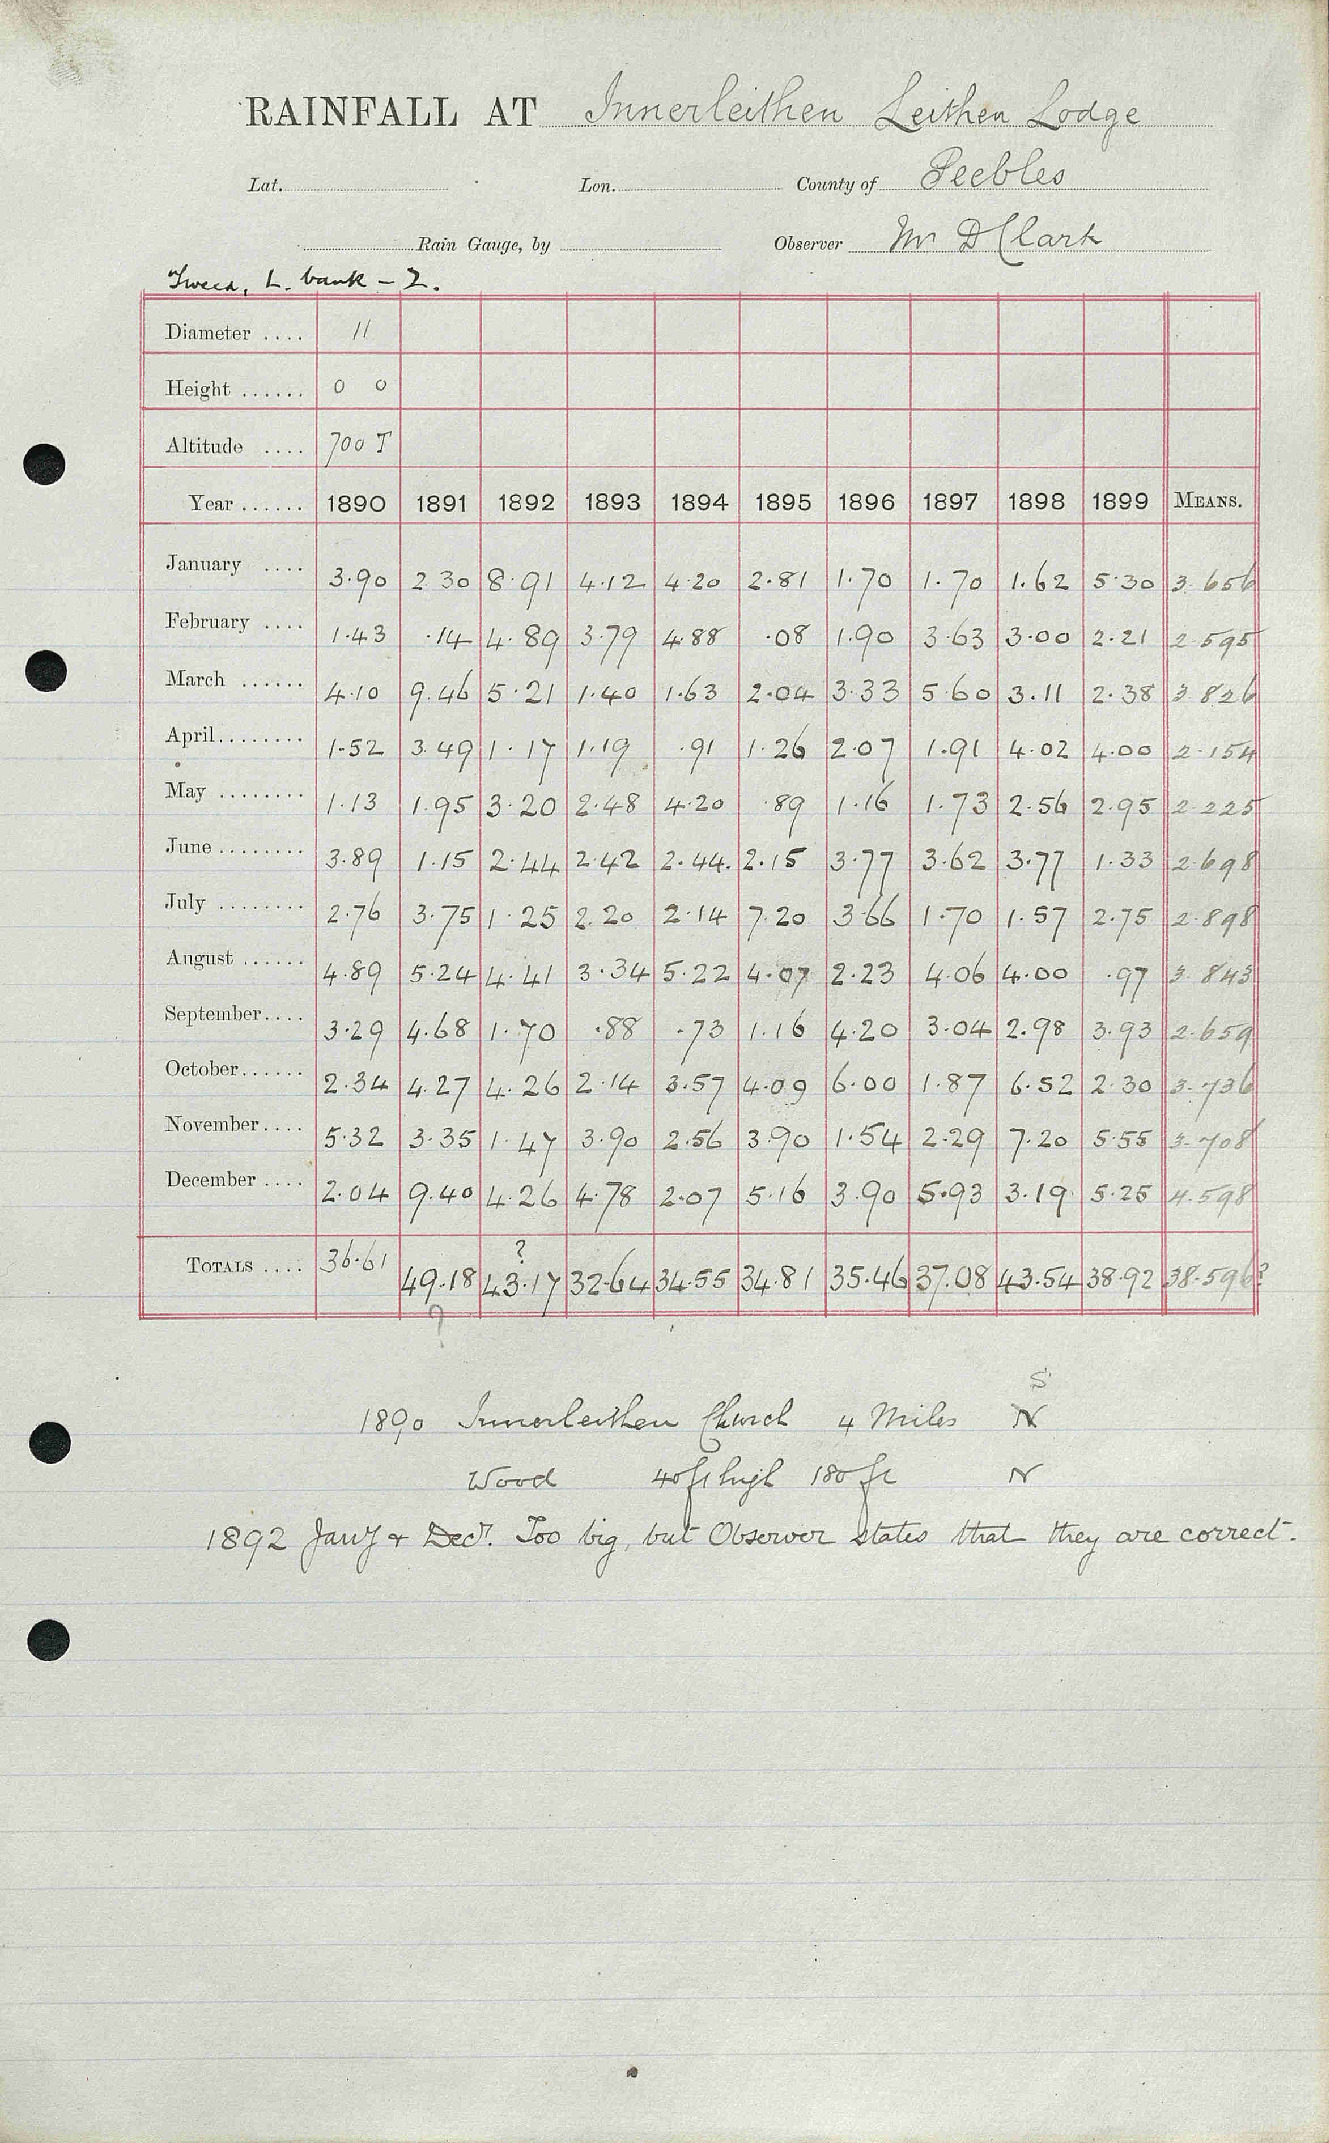 RAINFALL AT Innerleithen Leithen Lodge
Lat. Lon. County of Peebles
Rain Gauge, by Observer Mr D Clark
Tweed, L. bank - 2.
Diameter .... 11
Height ...... 0 0
Altitude .... 700 T
Year ...... 1890 1891 1892 1893 1894 1895 1896 1897 1898 1899 MEANS.
January .... 3.90 2 30 8.91 4.12 4.20 2.81 1.70 1.70 1.62 5.30 3.656
February .... 1.43 .14 4.89 3.79 4.88 .08 1.90 3.63 3.00 2.21 2.595
March ...... 4.10 9.46 5.21 1.40 1.63 2.04 3.33 5.60 3.11 2.38 3.826
April ........ 1.52 3.49 1.17 1.19 .91 1.26 2.07 1.91 4.02 4.00 2.154
May ........ 1.13 1.95 3.20 2.48 4.20 .89 1.16 1.73 2.56 2.95 2.225
June ........ 3.89 1.15 2.44 2.42 2.44. 2.15 3.77 3.62 3.77 1.33 2.698
July ........ 2.76 3.75 1.25 2.20 2.14 7.20 3.66 1.70 1.57 2.75 2.898
August ...... 4.89 5.24 4.41 3.34 5.22 4.07 2.23 4.06 4.00 .97 3.843
September .... 3.29 4.68 1.70 .88 .73 1.16 4.20 3.04 2.98 3.93 2.659
October ...... 2.34 4.27 4.26 2.14 3.57 4.09 6.00 1.87 6.52 2.30 3.736
November .... 5.32 3.35 1.47 3.90 2.56 3.90 1.54 2.29 7.20 5.55 3.708
December .... 2.04 9.40 4.26 4.78 2.07 5.16 3.90 5.93 3.19 5.25 4.598
?
TOTALS .... 36.61 49.18 43.17 32.64 34.55 34.81 35.46 37.08 43.54 38.92 38.596?
?
S
1890 Innerleithen Church 4 Miles N
Wood 40 ft high 180 ft N
1892 Jany & Decr. Too big, but Observer states that they are correct.